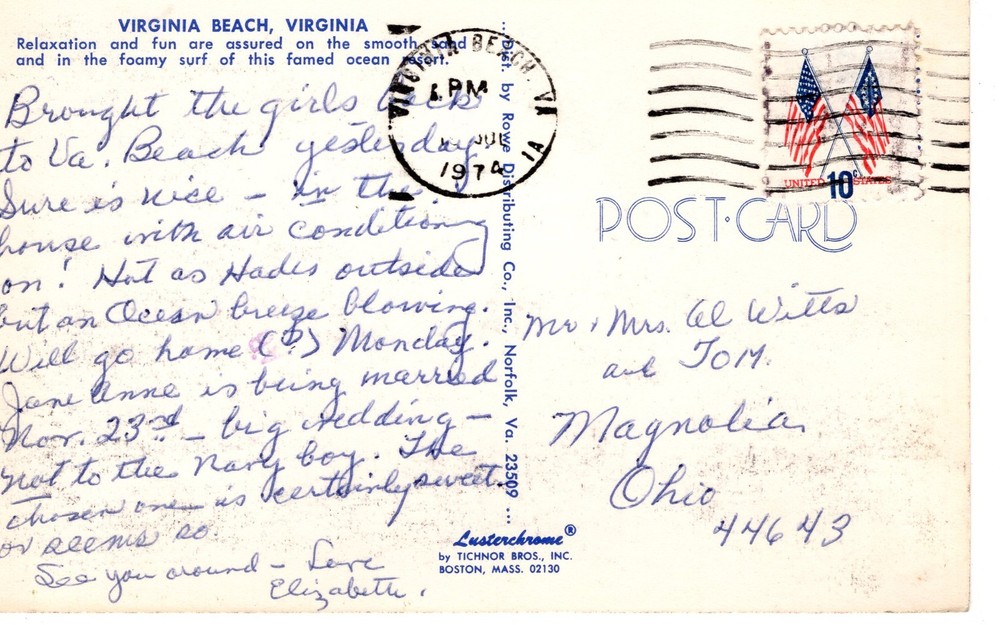 VIRGINIA BEACH, VIRGINIA
Relaxation and fun are assured on the smooth sand
and in the foamy surf of this famed ocean resort.
Brought the girls back
to Va. Beach yesterday.
Sure is nice – in the
house with air condition
on! Hot as Hades outside
but an Ocean breeze blowing.
Will go home (?) Monday.
Jane Anne is being married
Nov. 23rd – big wedding –
not to the Navy boy. The
chosen one is certainly sweet.
or seems so.
See you around – Love
Elizabeth.
Dist. by Rowe Distributing Co., Inc., Norfolk, Va. 23509
Lusterchrome®
by TICHNOR BROS., INC.
BOSTON, MASS. 02130
VIRGINIA BEACH VA
PM
JUL
1974
UNITED STATES
10c
POST CARD
Mr & Mrs. Al Witts
and TOM.
Magnolia,
Ohio
44643